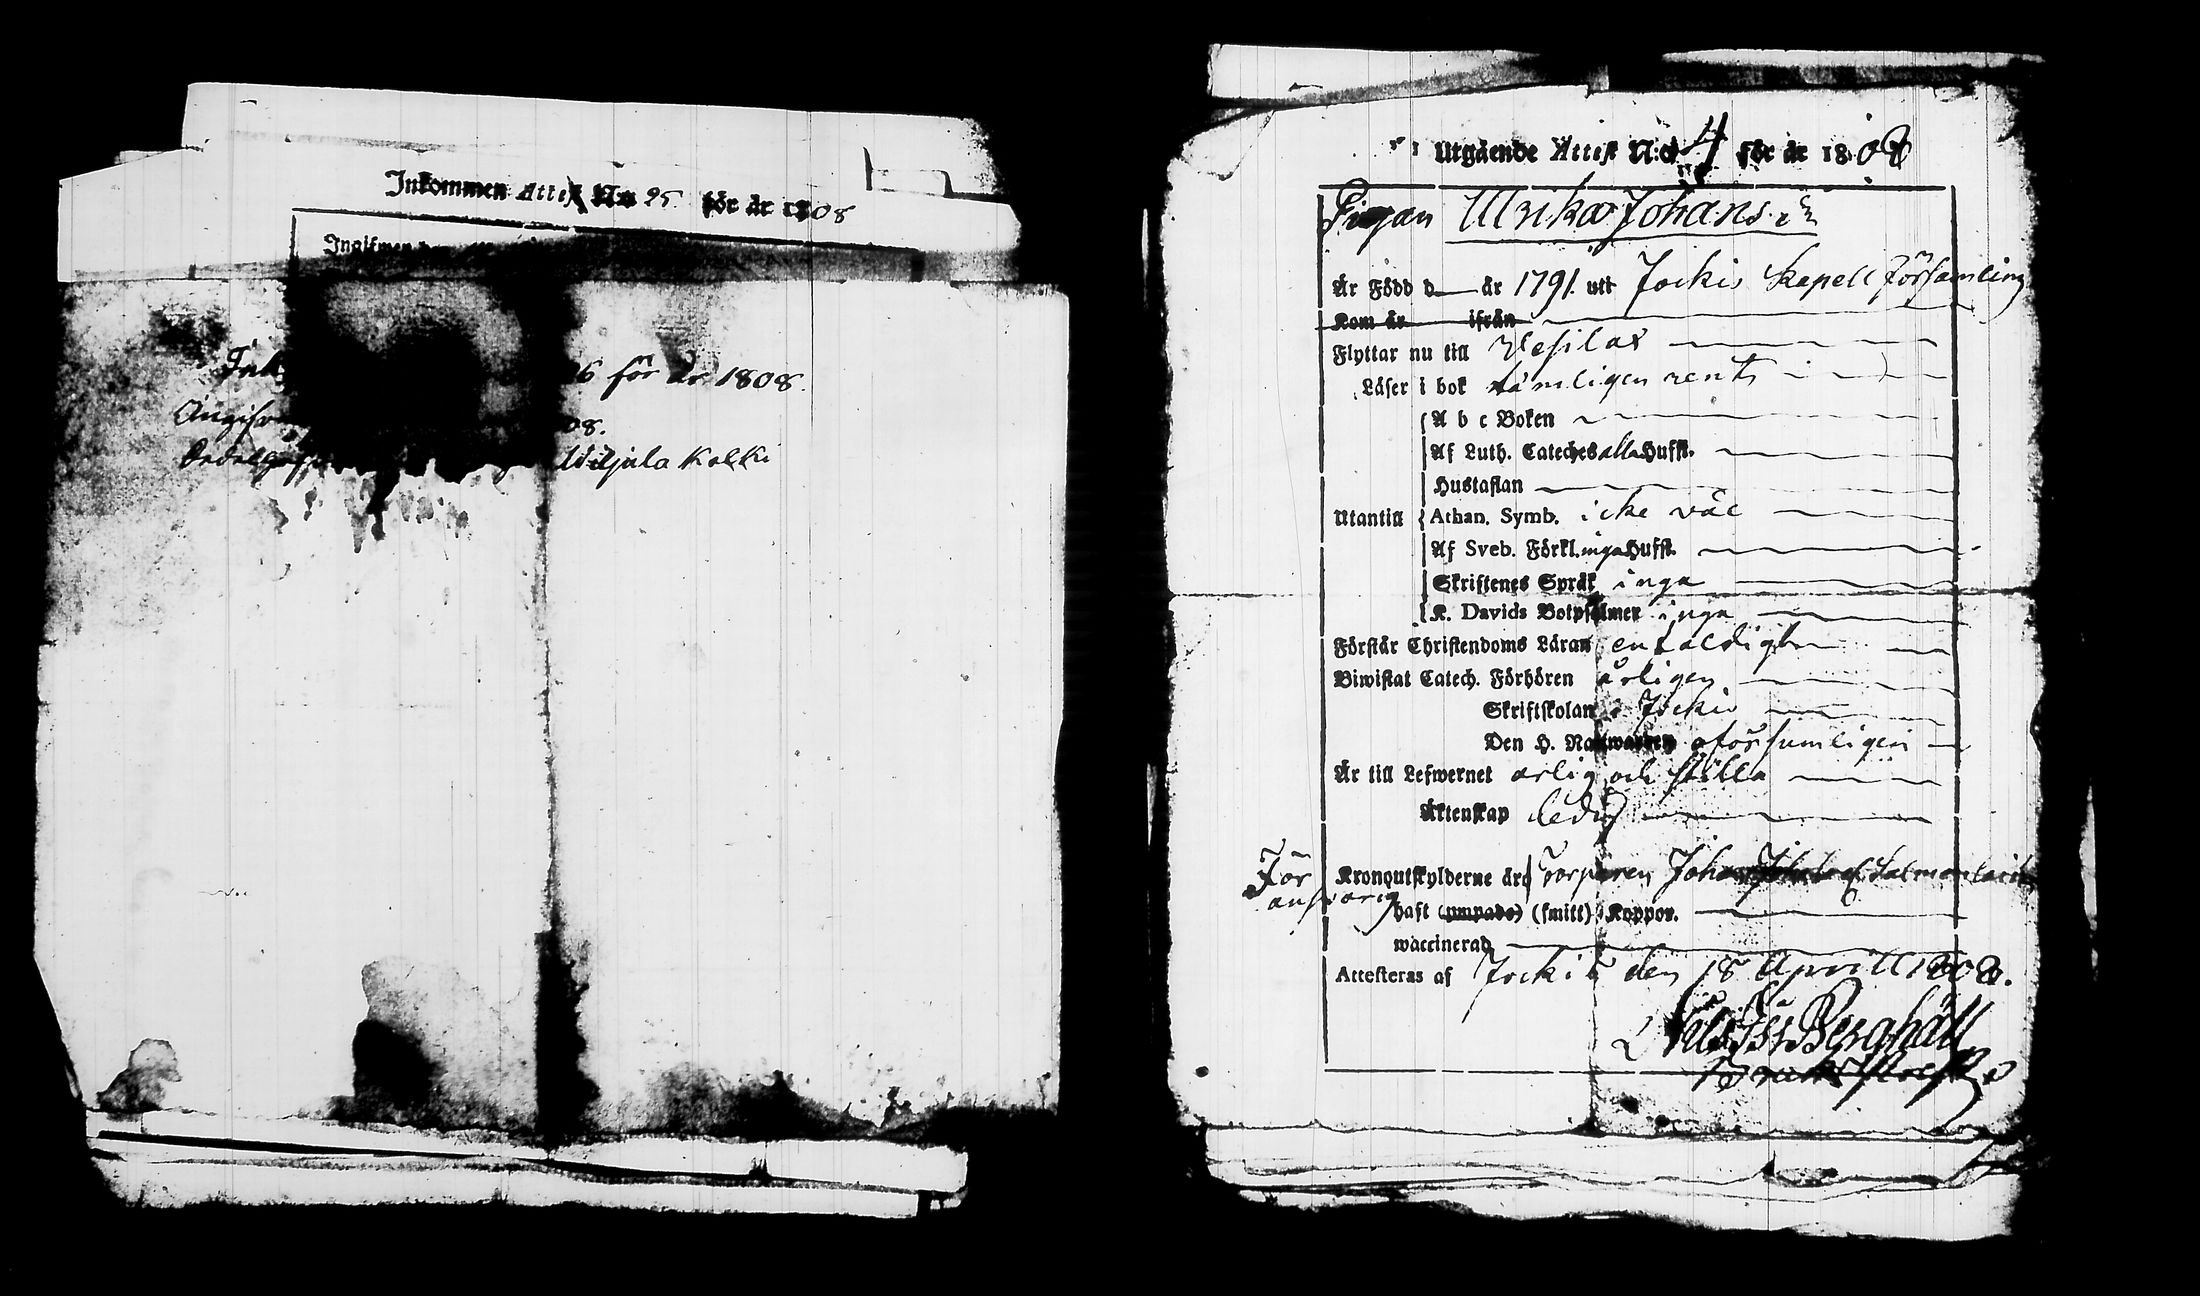 Inkommen Attest N:o 95 för år 1808
Ink 26 för år 1808.
Angifven 08.
Wiljala Kolki
Utgående Attest N:o 4 för år 1808
Pigan Ulrika Johans
Är Född d är 1791. uti Jockis Kapell Församling
Kom år ifrån
Flyttar nu till Vesilax
Läser i bok tämligen rent
A b c Boken
Af Luth. Cateches alla Hufst.
Hustaflan
Utantill Athan. Symb. icke väl
Af Sveb. Förkl. inga Hufst.
Skriftenes Språk inga
K. Davids Botpsalmer inga
Förstår Christendoms Läran enfaldigt
Biwistat Catech. Förhören årligen
Skriftskolan i Jockis
Den H. Nattwarden oförsumligen
Är till Lefwernet ärlig och stilla
Äktenskap ledig
För Kronoutskylderne äro Torparen Johan
ansvarig
haft (ympade) (smitt) Koppor.
waccinerad
Attesteras af Jockis den 18 Aprill 1808.
Nils Berghäll